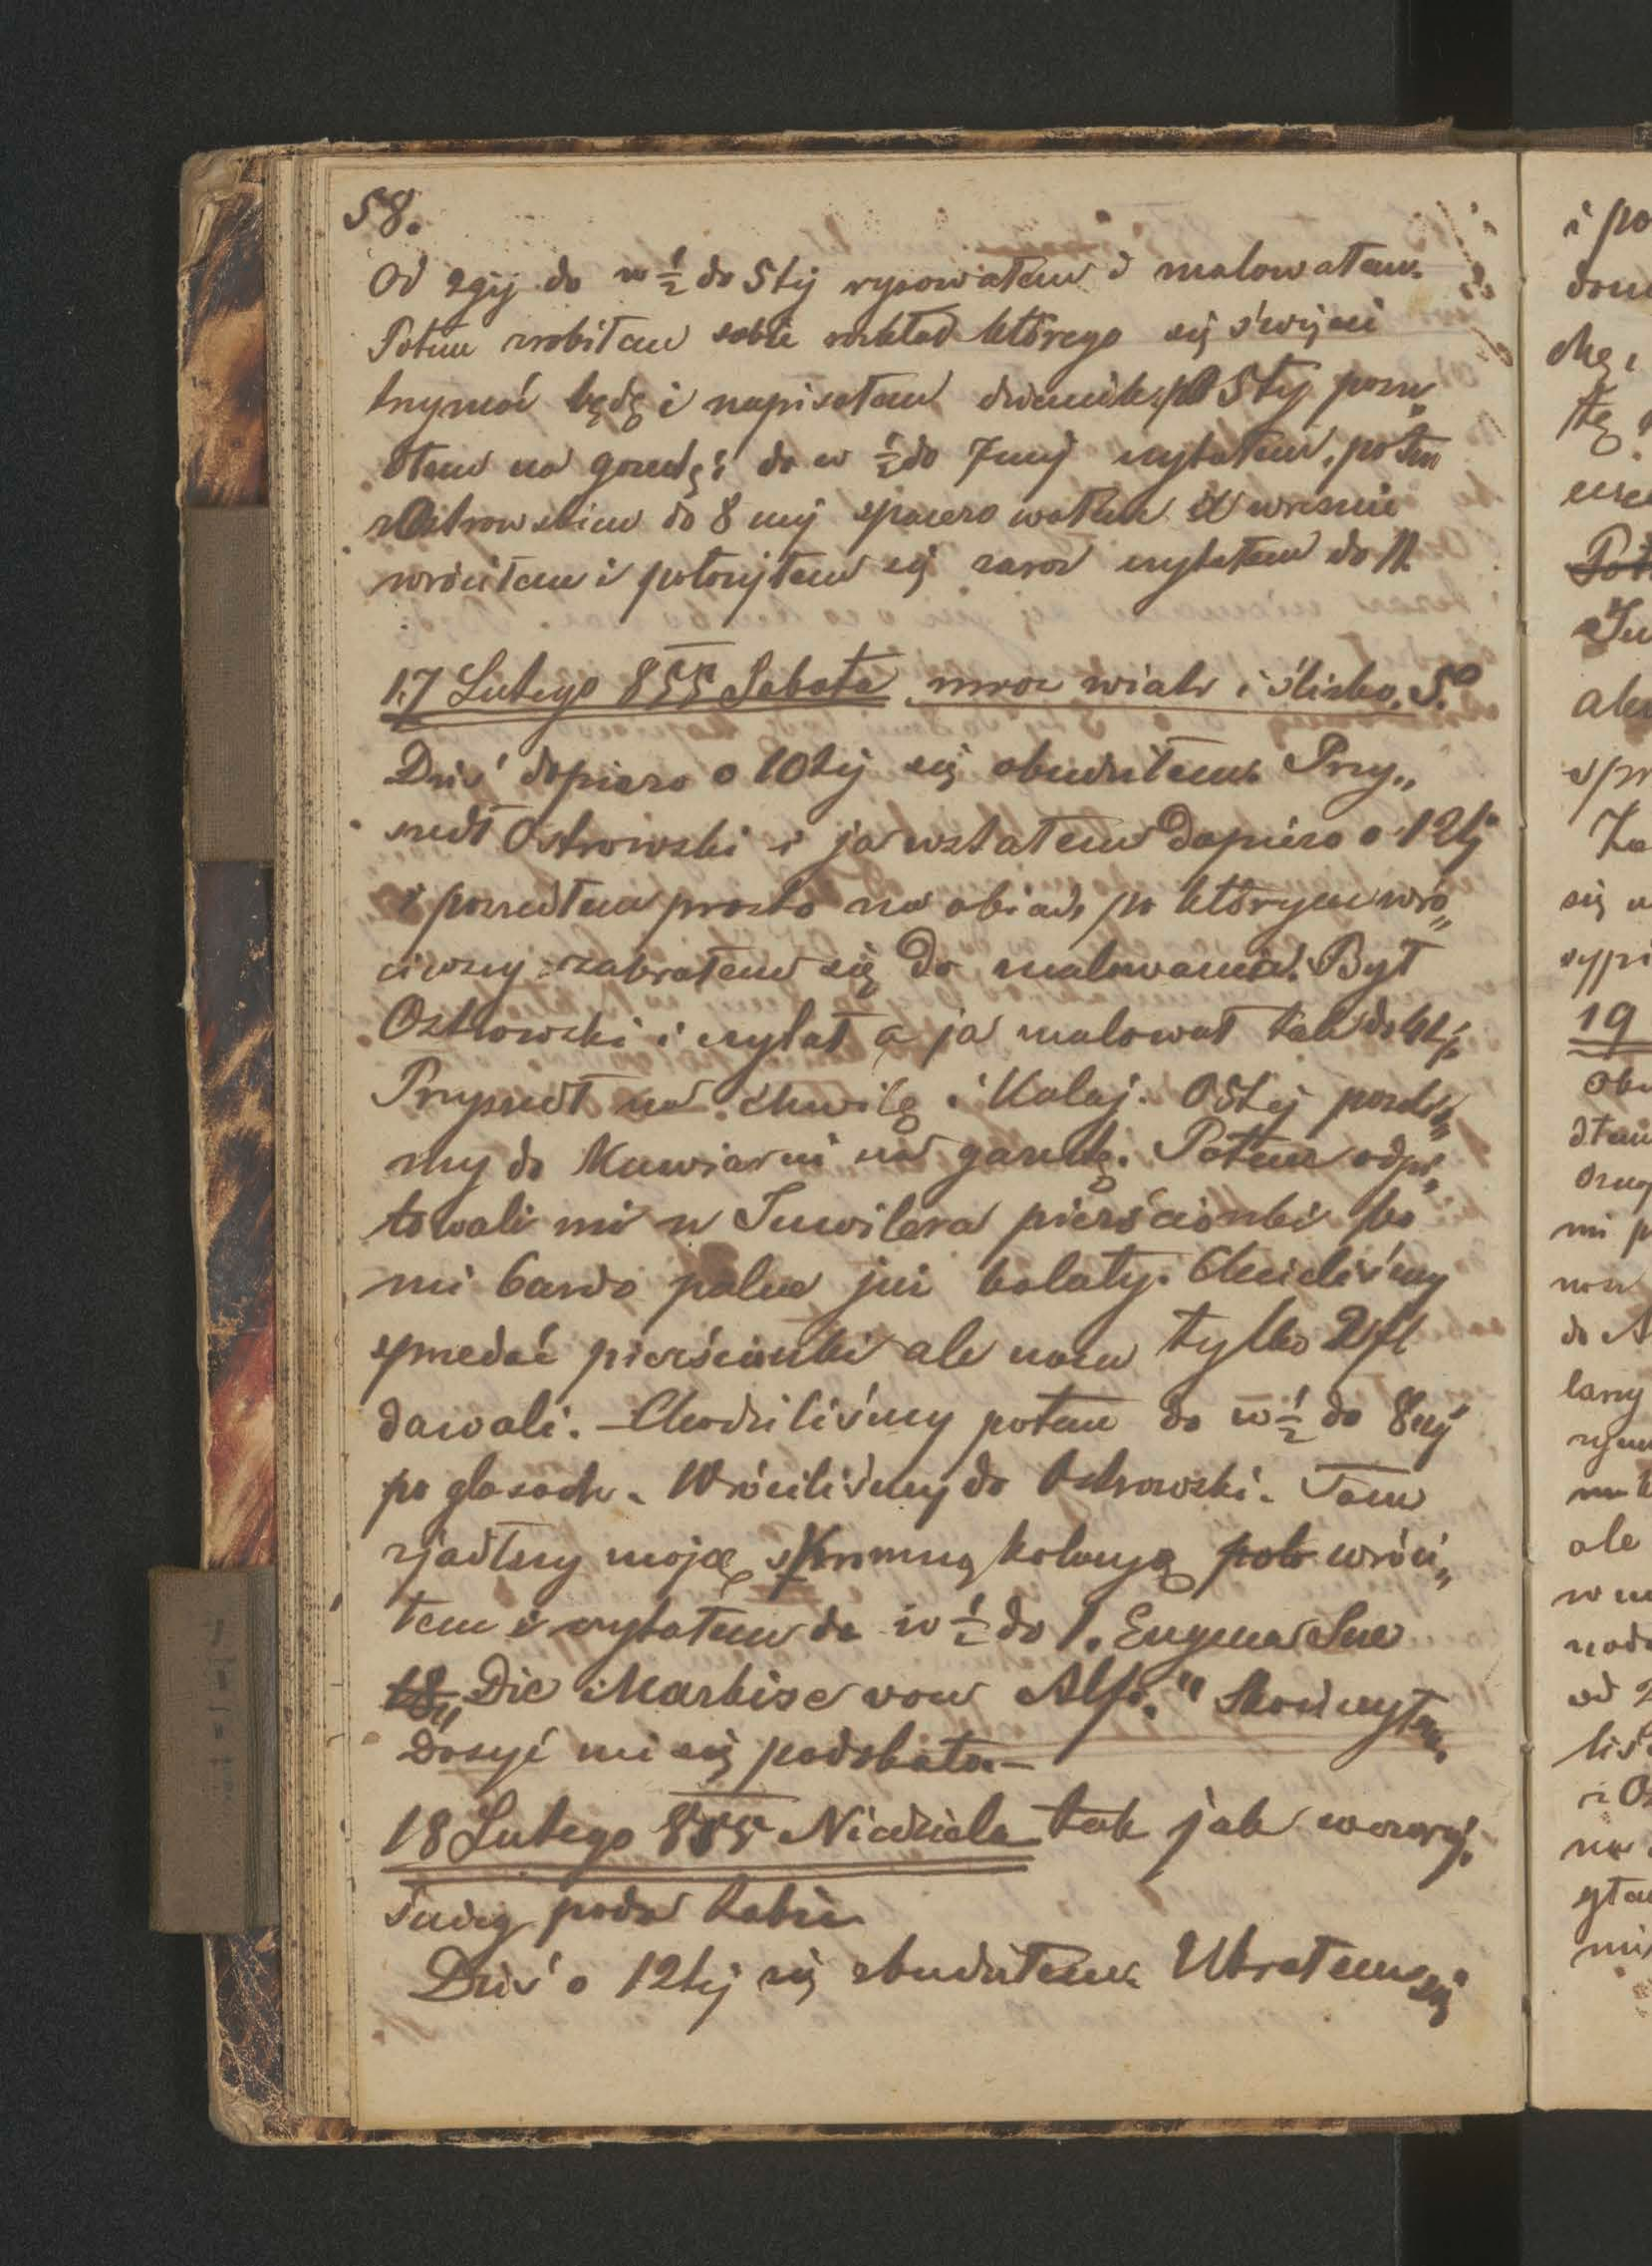 58.
Od 2gij do w ½ do 5tij rysowałem i malowałem.
Potem zrobiłem sobie rozkład którego się święcie
trzymać będę i napisałem dziennik; po 5tej posze„
dłem na gazetę; do w ½ do 7mij czytałem, potem
z Ostrowskim do 8mij spacerowałem
wróciłem i położyłem się zaraz czytałem do 11.
17 Lutego 855 Sobota mroz wiatr i ślisko. 5°
Dziś dopiero o 10tij się obudziłem. Przy„
szedł Ostrowski i ja wstałem dopiero o 12tij
i poszedłem prosto na obiad, po którym wró„
ciwszy zabrałem się do malowania. Był
Ostrowski i czytał a ja malował tak do
Przyszedł na chwilę i Kolaj. O 5tej poszliś„
my do Kawiarni na gazetę. Potem odpi„
towali mi u Juwilera pierścionki bo
mi bardzo palce już bolały. Chcieliśmy
spzedać pierścionki ale nam tylko 2 fl
dawali. – Chodziliśmy potem do w ½ do 8mij
po glasach. Wróciliśmy do Ostrowski. Tam
zjadłszy moję skromną kolacyą poto wróci„
łem i czytałem do w ½ do 1. Eugena Sue
18 „Die Markise von Alfi." Skończyłem.
Dosyć mi się podobała. –
18 Lutego 855 Niedziela tak jak wczoraj.
śnieg pada
Dziś o 12tij się zbudziłem. Ubrałem się